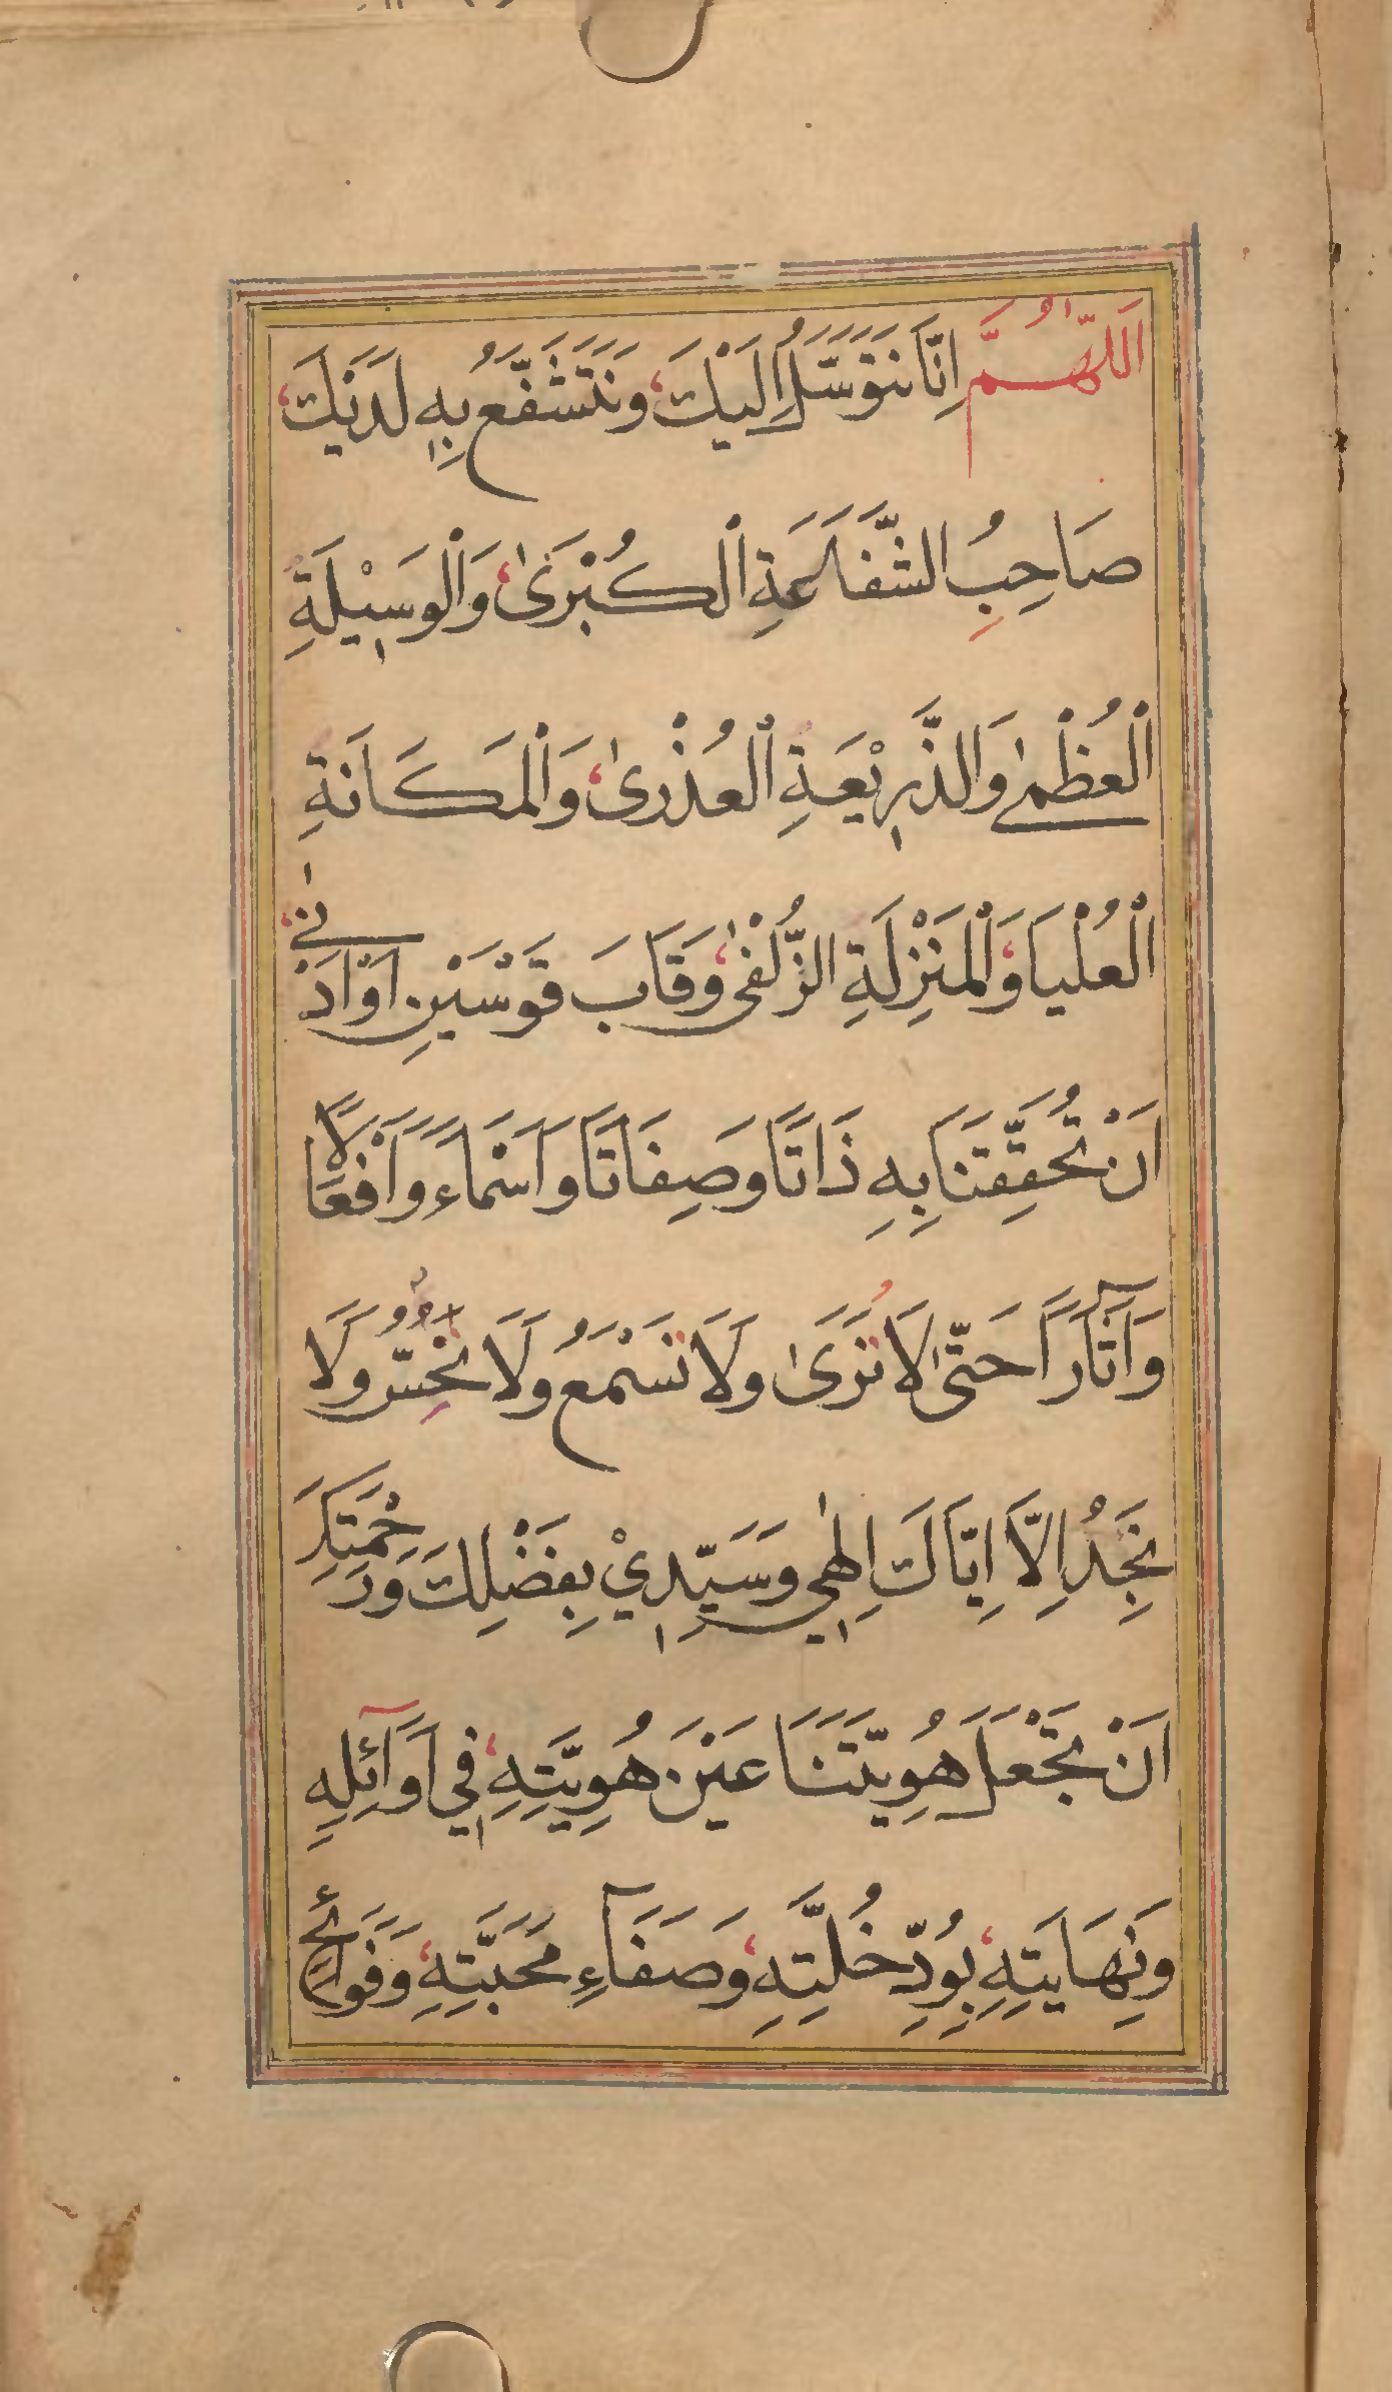 اَللّٰهُمَّ اِنَّا نَتَوَسَّلُ اِلَيْكَ وَنَتَشَفَّعُ بِهٖ لَدَيْكَ
صَاحِبِ الشَّفَاعَةِ الْكُبْرَىٰ وَالْوَسٖيْلَةِ
الْعُظْمٰى وَالذَّرٖيْعَةِ الْعُذْرىٰ وَالْمَكَانَةِ
الْعُلْيَا وَالْمَنْزِلَةِ الزُّلْفٰى وَقَابَ قَوْسَيْنِ اَوْ اَدْنٰى
اَنْ تُحَقِّقَنَا بِهِ ذَاتًا وَصِفَاتًا وَاَسْمَاءً وَاَفْعَالًا
وَآثَارًا حَتّٰى لَا نَرَىٰ وَلَا نَسْمَعُ وَلَا نُحِسُّ وَلَا
نَجِدُ اِلَّا اِيَّاكَ اِلٰهٖي وَسَيِّدٖيْ بِفَضْلِكَ وَرَحْمَتِكَ
اَنْ تَجْعَلَ هُوِيَّتَنَا عَيْنَ هُوِيَّتِهِ فٖي اَوَآئِلِهِ
وَنِهَايَتِهِ بِوُدِّ خُلَّتِهِ وَصَفَآءِ مَحَبَّتِهِ وَفَوَاتِحِ